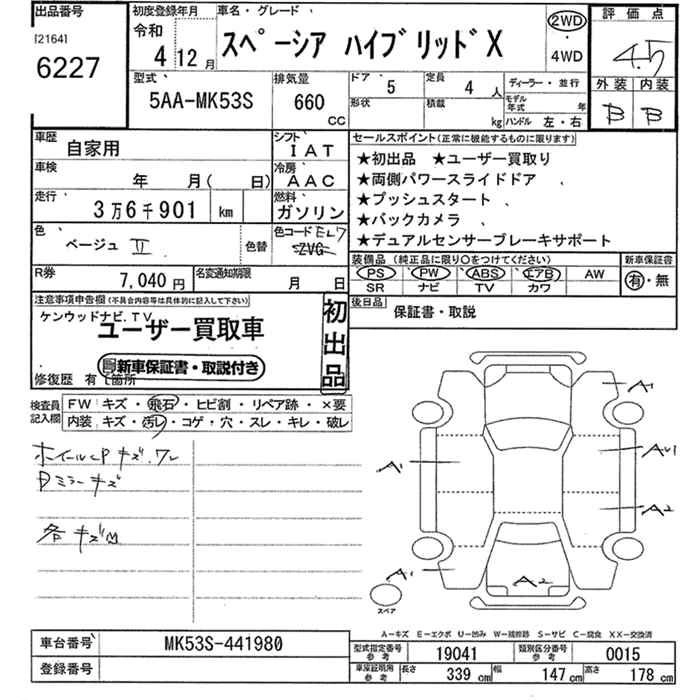 出品番号
[2164]
6227
初度登録年月
令和
4 12月
車名・グレード
スペーシア ハイブリッドX
2WD
・
4WD
評価点
4.5
外装 内装
B B
型式
5AA-MK53S
排気量
660
CC
ドア
5
定員
4 人
形状
積載
kg
ディーラー・並行
モデル年式 年
ハンドル 左・右
車歴
自家用
シフト
IAT
車検
年 月( 日)
冷房
AAC
走行
3万6千901 km
燃料
ガソリン
色
ベージュ II
色替
色コード EL7
ZVG
R券
7,040 円
名変通知期限
月 日
セールスポイント(正常に機能するものに限ります)
★初出品 ★ユーザー買取り
★両側パワースライドドア
★プッシュスタート
★バックカメラ
★デュアルセンサーブレーキサポート
装備品(純正品に限り○をつけてください)
PS PW ABS エアB AW
SR ナビ TV カワ
新車保証書
有・無
後日品
保証書・取説
注意事項申告欄(不具合内容等は具体的に記入して下さい)
ケンウッドナビ.TV
ユーザー買取車
新車保証書・取説付き
初出品
修復歴 有 箇所
検査員記入欄
FW キズ・飛石・ヒビ割・リペア跡・×要
内装 キズ・汚レ・コゲ・穴・スレ・キレ・破レ
ホイールCPキズ.ワレ
Dミラーキズ
各キズM
A1
A1
AU1
A2
A1
A2
スペア
A－キズ E－エクボ U－凹み W－補修跡 S－サビ C－腐食 XX－交換済
車台番号
MK53S-441980
登録番号
型式指定番号参考
19041
類別区分番号参考
0015
車庫証明用参考
長さ 339 cm
幅 147 cm
高さ 178 cm